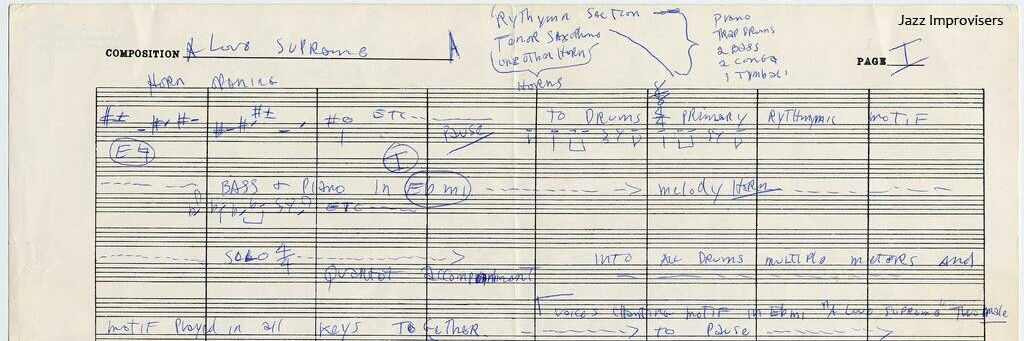 Jazz Improvisers
Rythymn Section
Tenor Saxophone
(one other Horn)
Horns
Piano
TRAP DRUMS
2 BASS
2 CONGA
1 TYMBALI
COMPOSITION A Love Supreme A
PAGE I
Horn opening
ETC
PAUSE
TO DRUMS PRIMARY RYTHYMIC MOTIF
I
BASS & PIANO in Eb mi melody Horn
ETC
SOLO 4/4 INTO ALL DRUMS MULTIPLE meters AND
Quartet Accompaniment
voices chanting motif in Eb mi "A Love Supreme" The male
motif Played in all Keys Together TO Pause